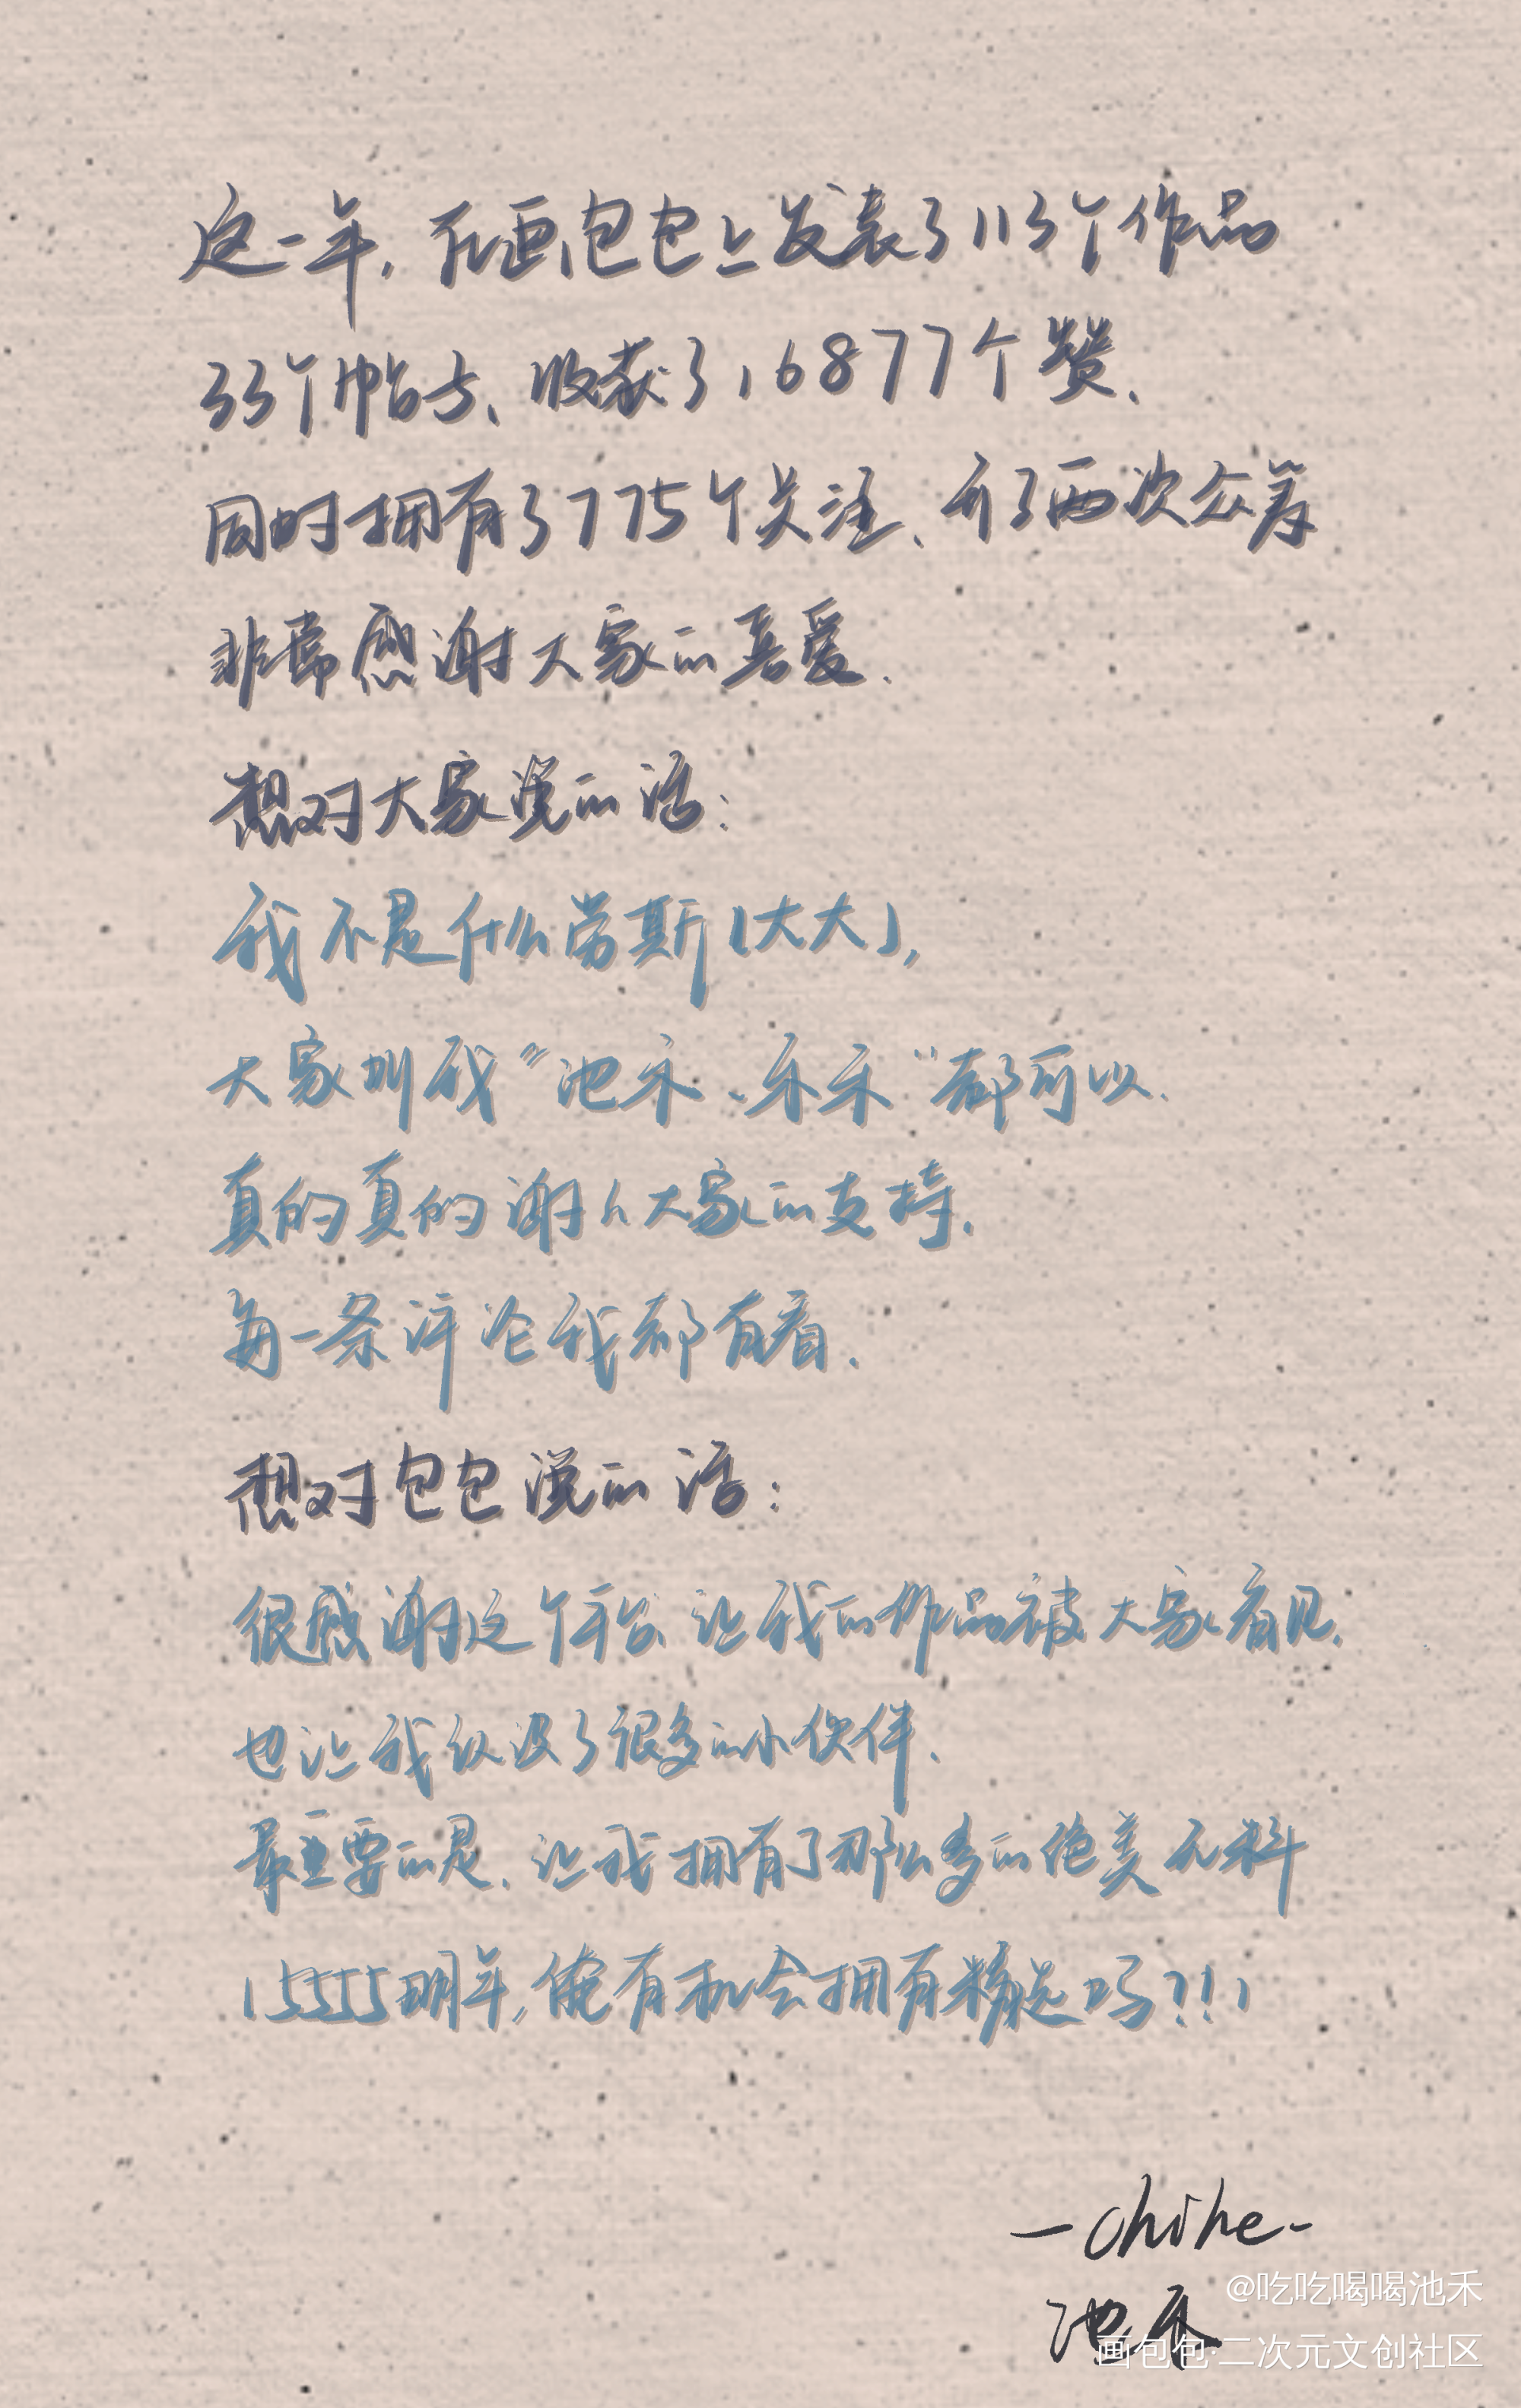 这一年，在画包包上发表了113个作品
33个帖子、收获了16877个赞、
同时拥有了775个关注、开了两次众筹
非常感谢大家的喜爱、
想对大家说的话：
我不是什么劳斯（大大），
大家叫我“池禾、禾禾”都可以、
真的真的谢谢大家的支持、
每一条评论我都有看、
想对包包说的话：
很感谢这个平台、让我的作品被大家看见、
也让我认识了很多的小伙伴、
最重要的是、让我拥有了那么多的绝美无料
15555明年，俺有机会拥有精选吗？！！
-chihe-
池禾
@吃吃喝喝池禾
画包包·二次元文创社区